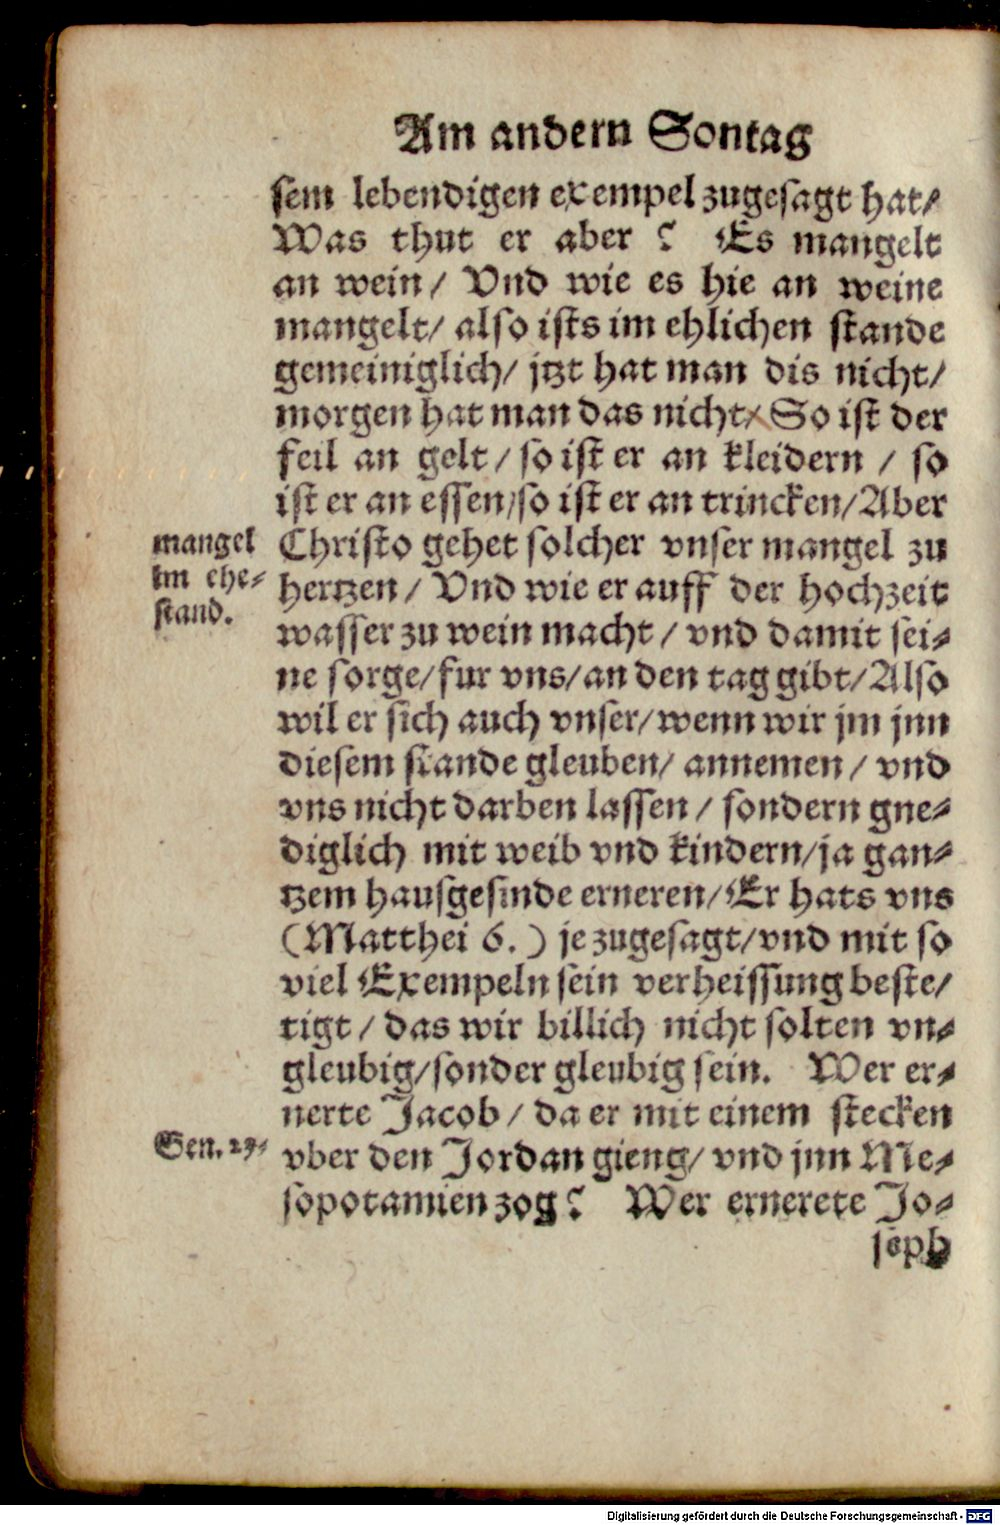 Am andern Sontag
sem lebendigen exempel zugesagt hat/
Was thut er aber? Es mangelt
an wein/ Vnd wie es hie an weine
mangelt/ also ists im ehlichen stande
gemeiniglich/ jtzt hat man dis nicht/
morgen hat man das nicht/ So ist der
feil an gelt/ so ist er an kleidern/ so
ist er an essen/ so ist er an trincken/ Aber
mangel
im ehe-
stand.
Christo gehet solcher vnser mangel zu
hertzen/ Vnd wie er auff der hochzeit
wasser zu wein macht/ vnd damit sei-
ne sorge/ fur vns/ an den tag gibt/ Also
wil er sich auch vnser/ wenn wir jm jnn
diesem stande gleuben/ annemen/ vnd
vns nicht darben lassen/ sondern gne-
diglich mit weib vnd kindern/ ja gan-
tzem hausgesinde erneren/ Er hats vns
(Matthei 6.) je zugesagt/ vnd mit so
viel Exempeln sein verheissung beste/
tigt/ das wir billich nicht solten vn-
gleubig/ sonder gleubig sein. Wer er-
nerte Jacob/ da er mit einem stecken
Gen. 29.
vber den Jordan gieng/ vnd jnn Me-
sopotamien zog? Wer ernerete Jo-
seph
Digitalisierung gefördert durch die Deutsche Forschungsgemeinschaft - DFG